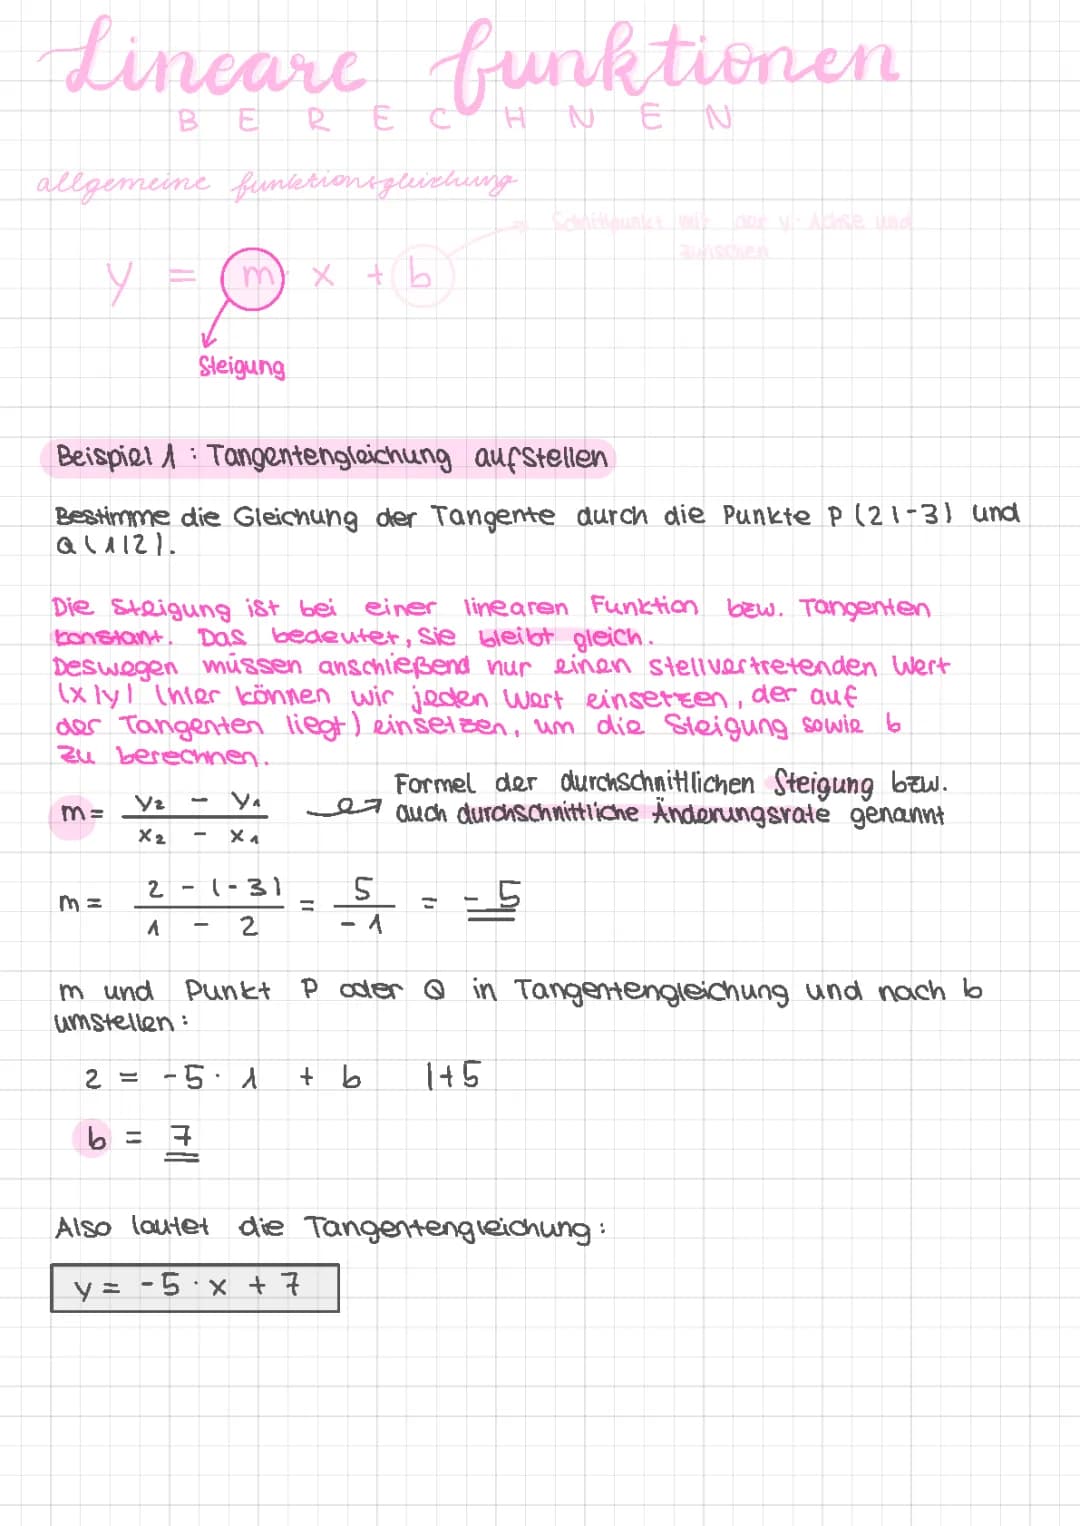 Lineare funktionen
BERECHNEN
allgemeine funktionsgleichung
Schnittpunkt mit der y-Achse und
zwischen
y = m · x + b
Steigung
Beispiel 1 : Tangentengleichung aufstellen
Bestimme die Gleichung der Tangente durch die Punkte P (2|-3) und
Q (1|2).
Die Steigung ist bei einer linearen Funktion bzw. Tangenten
konstant. Das bedeutet, sie bleibt gleich.
Deswegen müssen anschießend nur einen stellvertretenden Wert
(x|y) (hier können wir jeden Wert einsetzen, der auf
der Tangenten liegt) einsetzen, um die Steigung sowie b
zu berechnen.
m = (y₂ - y₁) / (x₂ - x₁)
Formel der durchschnittlichen Steigung bzw.
auch durchschnittliche Änderungsrate genannt
m = (2 - (-3)) / (1 - 2) = 5 / -1 = -5
m und Punkt P oder Q in Tangentengleichung und nach b
umstellen :
2 = -5 · 1 + b |+5
b = 7
Also lautet die Tangentengleichung :
y = -5 · x + 7